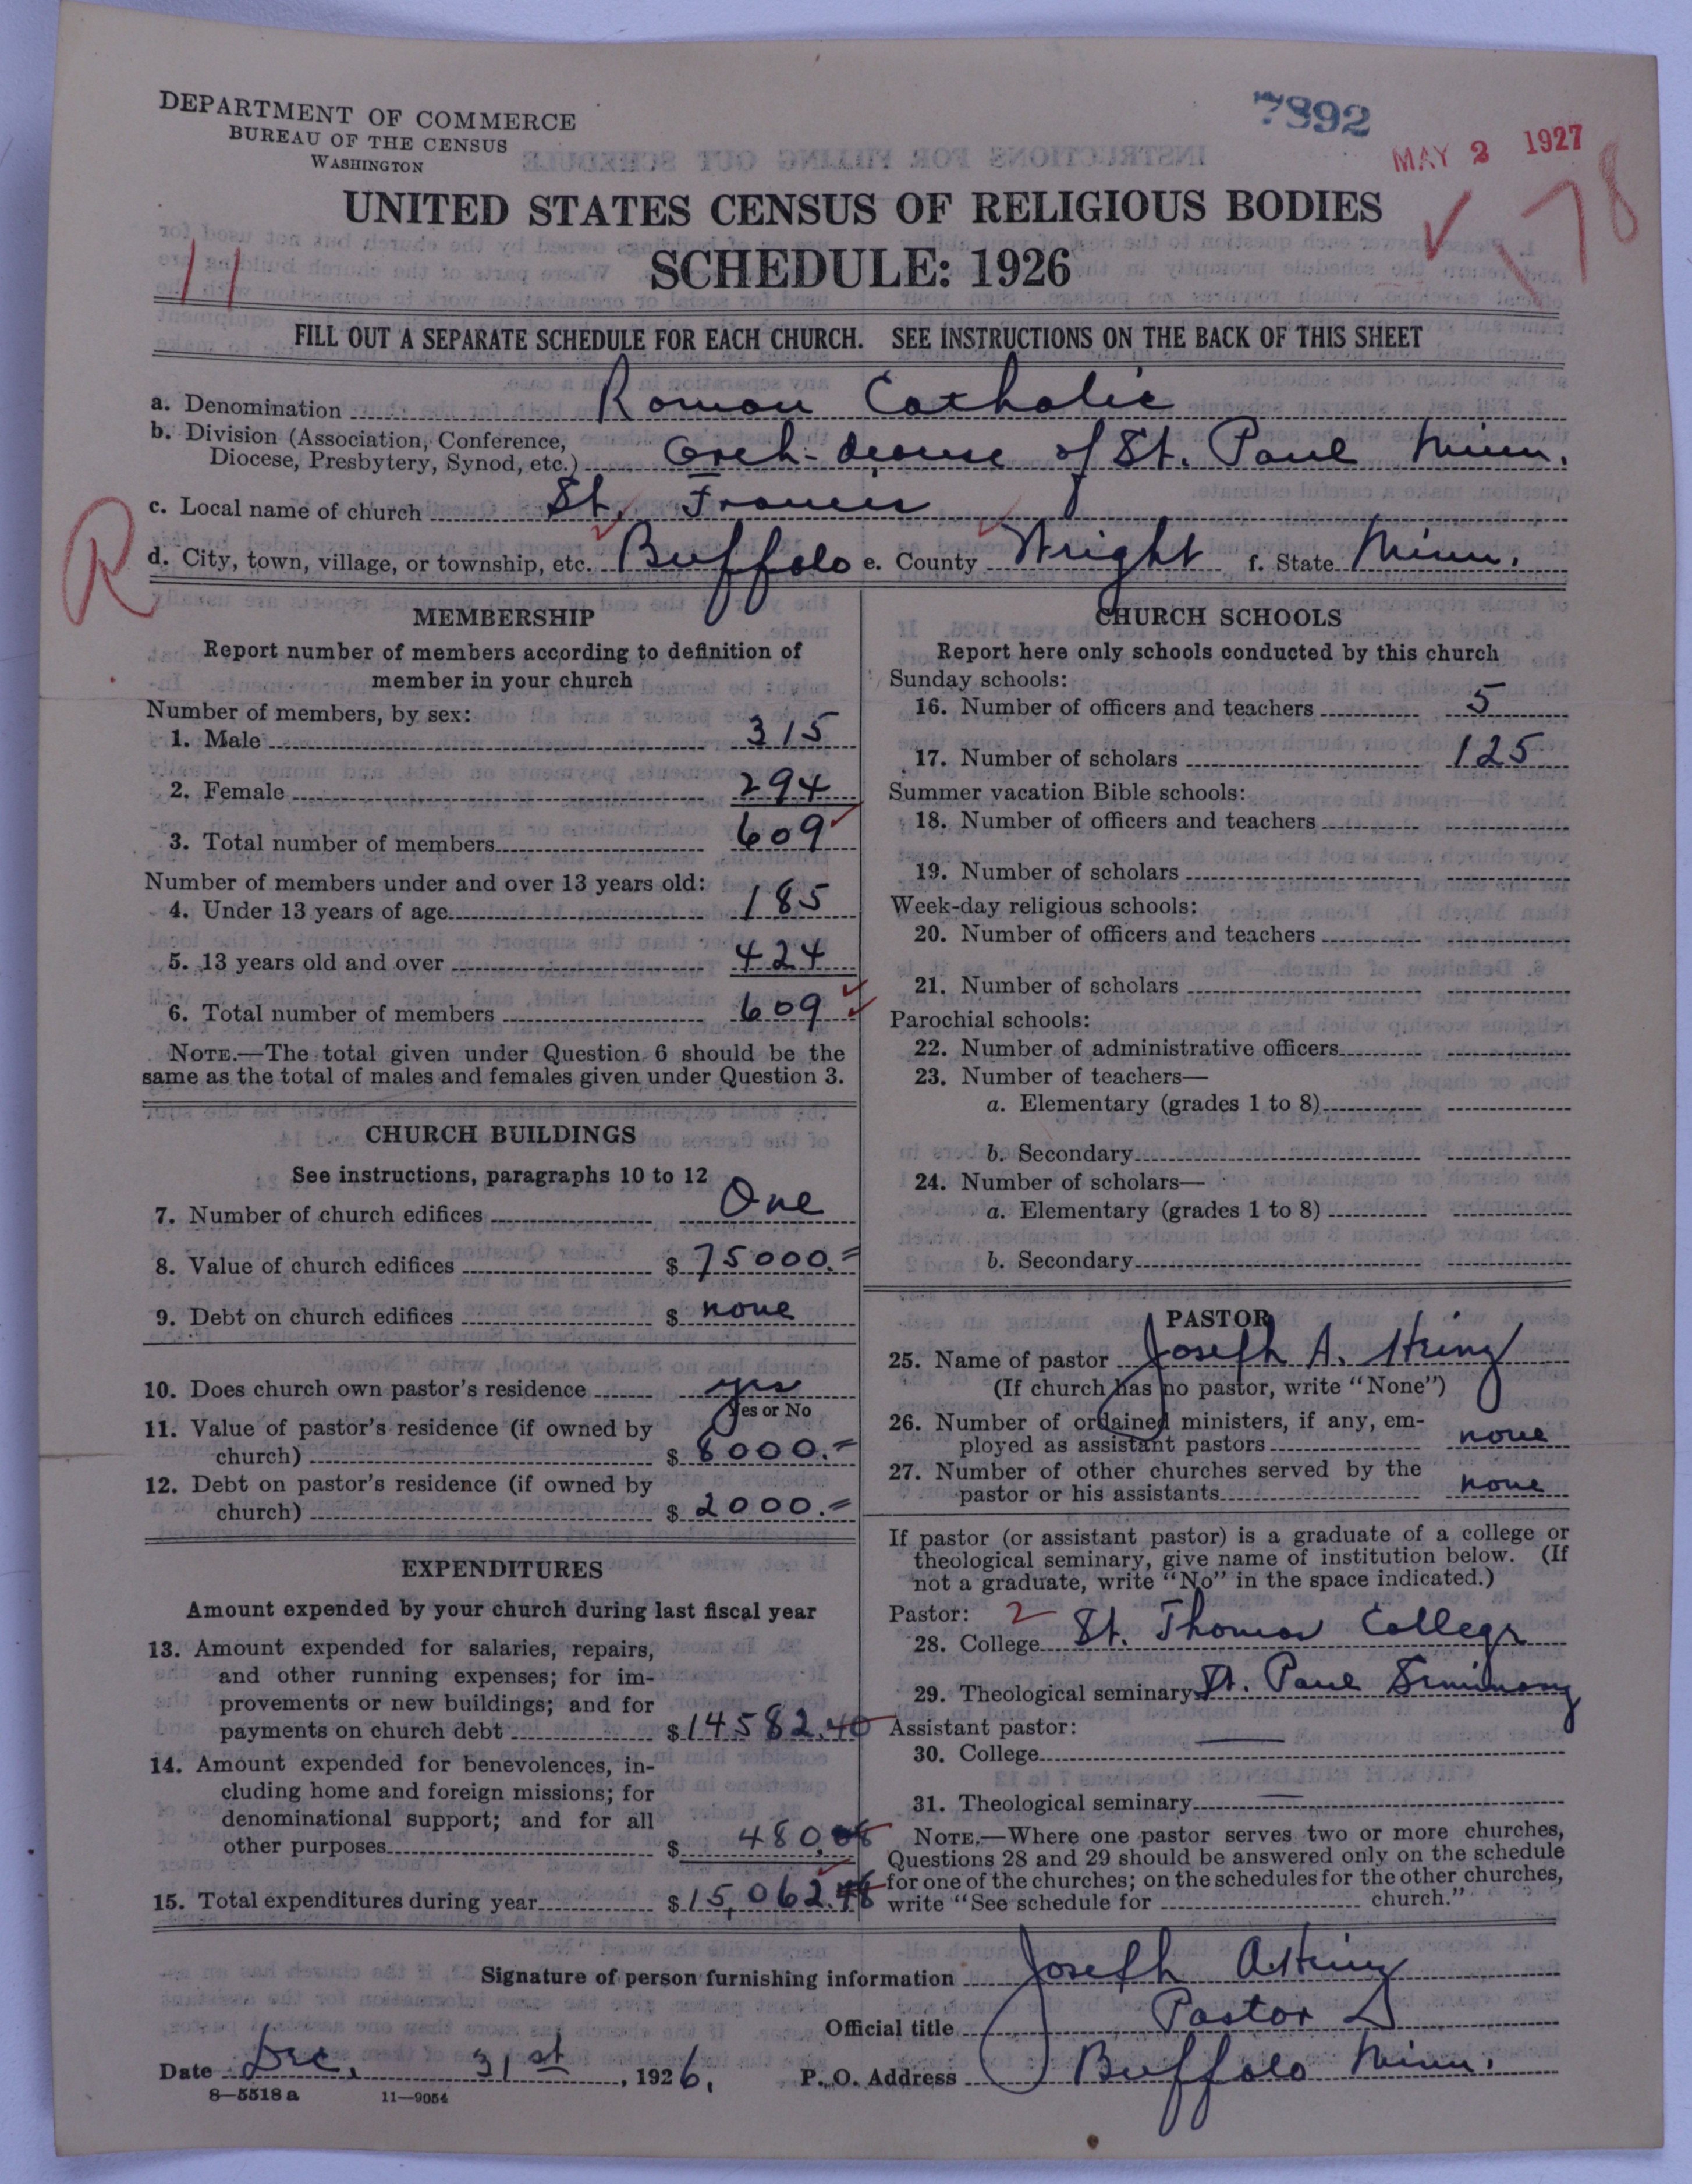 DEPARTMENT OF COMMERCE
BUREAU OF THE CENSUS
WASHINGTON
7892
MAY 2 1927
UNITED STATES CENSUS OF RELIGIOUS BODIES
SCHEDULE: 1926
11
78
FILL OUT A SEPARATE SCHEDULE FOR EACH CHURCH. SEE INSTRUCTIONS ON THE BACK OF THIS SHEET
a. Denomination Roman Catholic
b. Division (Association, Conference,
Diocese, Presbytery, Synod, etc.) of St. Paul Minn.
c. Local name of church St. Francis
R
d. City, town, village, or township, etc. Buffalo e. County Wright f. State Minn.
MEMBERSHIP
Report number of members according to definition of
member in your church
Number of members, by sex:
1. Male 315
2. Female 294
3. Total number of members 609
Number of members under and over 13 years old:
4. Under 13 years of age 185
5. 13 years old and over 424
6. Total number of members 609
NOTE.—The total given under Question 6 should be the
same as the total of males and females given under Question 3.
CHURCH BUILDINGS
See instructions, paragraphs 10 to 12
7. Number of church edifices One
8. Value of church edifices $ 75000.=
9. Debt on church edifices $ none
10. Does church own pastor's residence yes
Yes or No
11. Value of pastor's residence (if owned by
church) $ 8000.=
12. Debt on pastor's residence (if owned by
church) $ 2000.=
EXPENDITURES
Amount expended by your church during last fiscal year
13. Amount expended for salaries, repairs,
and other running expenses; for im-
provements or new buildings; and for
payments on church debt $ 14582.40
14. Amount expended for benevolences, in-
cluding home and foreign missions; for
denominational support; and for all
other purposes $ 480.
15. Total expenditures during year $ 15,062.
CHURCH SCHOOLS
Report here only schools conducted by this church
Sunday schools:
16. Number of officers and teachers 5
17. Number of scholars 125
Summer vacation Bible schools:
18. Number of officers and teachers
19. Number of scholars
Week-day religious schools:
20. Number of officers and teachers
21. Number of scholars
Parochial schools:
22. Number of administrative officers
23. Number of teachers—
a. Elementary (grades 1 to 8)
b. Secondary
24. Number of scholars—
a. Elementary (grades 1 to 8)
b. Secondary
PASTOR
25. Name of pastor Joseph A.
(If church has no pastor, write "None")
26. Number of ordained ministers, if any, em-
ployed as assistant pastors none
27. Number of other churches served by the
pastor or his assistants none
If pastor (or assistant pastor) is a graduate of a college or
theological seminary, give name of institution below. (If
not a graduate, write "No" in the space indicated.)
Pastor: 2
28. College St. Thomas College
29. Theological seminary St. Paul Seminary
Assistant pastor:
30. College
31. Theological seminary
NOTE.—Where one pastor serves two or more churches,
Questions 28 and 29 should be answered only on the schedule
for one of the churches; on the schedules for the other churches,
write "See schedule for church."
Signature of person furnishing information Joseph A.
Official title Pastor
Date Dec. 31st, 1926. P. O. Address Buffalo Minn.
8—5518 a 11—9054